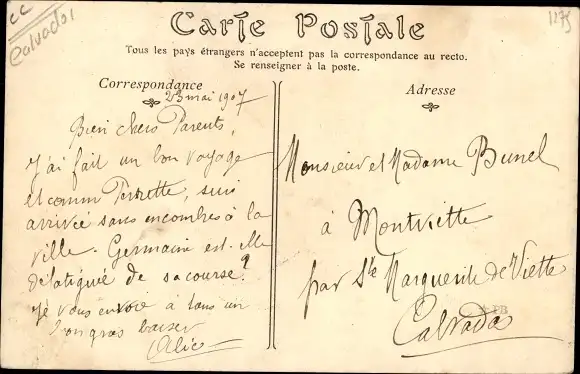 cc
Calvados
1275
Carte Postale
Tous les pays étrangers n'acceptent pas la correspondance au recto.
Se renseigner à la poste.
Correspondance
23 mai 1907
Bien chers Parents,
J'ai fait un bon voyage
et comm Perrette, suis
arrivée sans encombres à la
ville. Germaine est-elle
défatiguée de sa course?
Je vous envoie à tous un
bon gros baiser
Alice
Adresse
Monsieur et Madame Bunel
à Montviette
par Ste Marguerite de Viette
Calvados